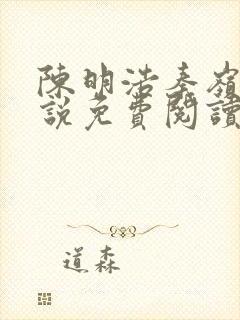 陳明浩秦嶺
說免費閱讀
道森